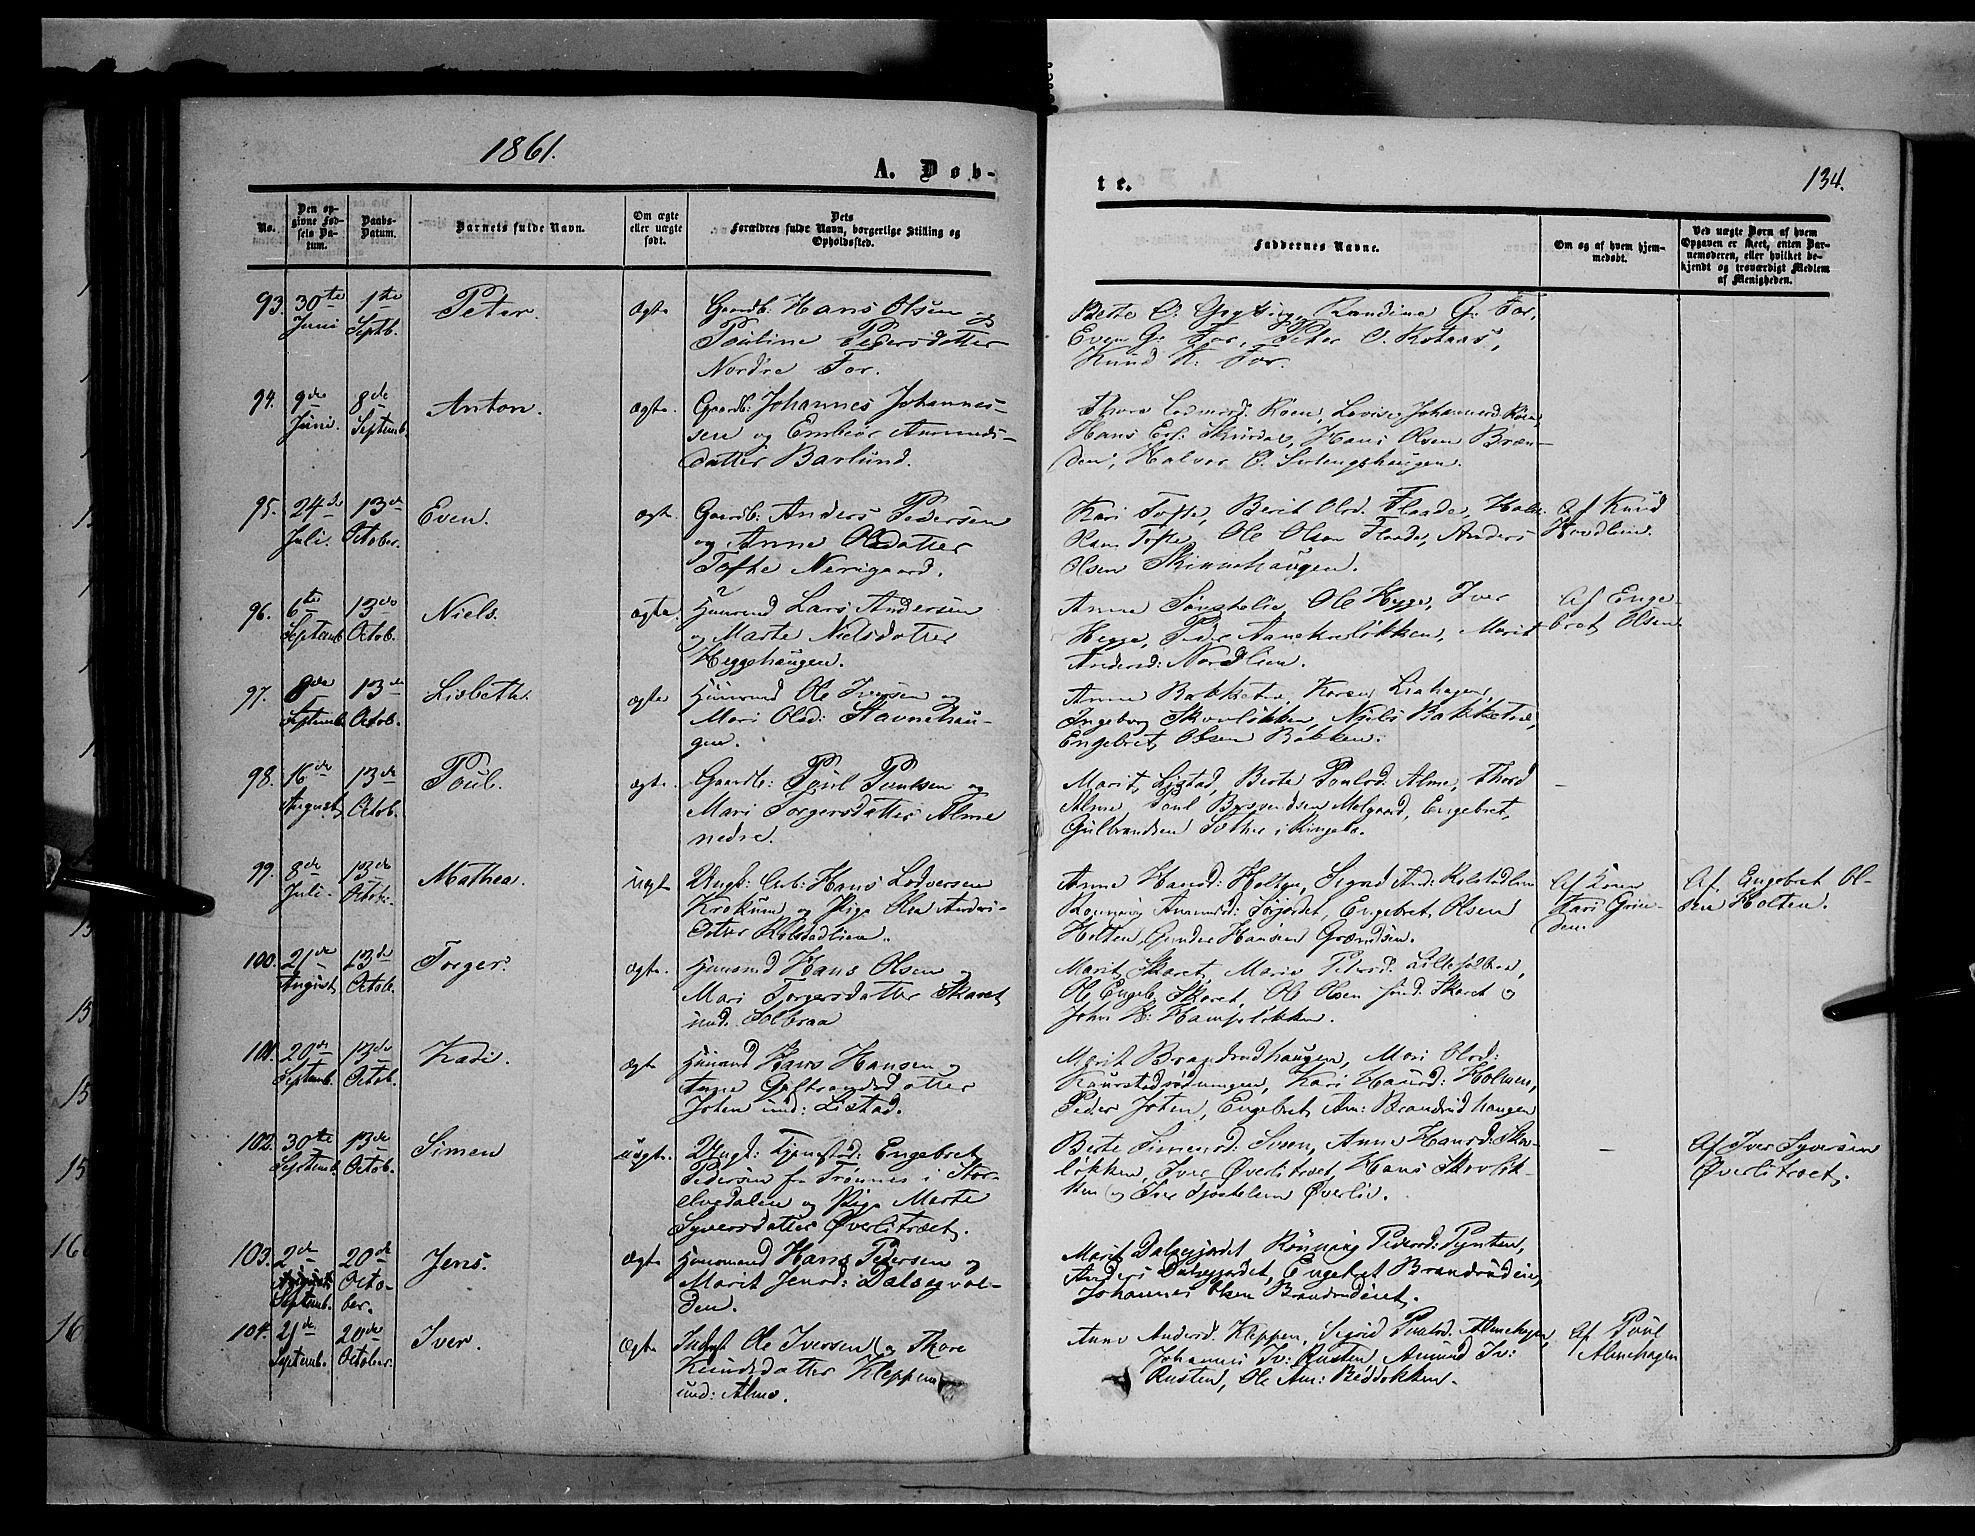 1861.
A. Døb-
te.
134.
No.
Den op-
givne Fød-
sels Da-
tum.
Daabs-
Datum.
Barnets fulde Navn.
Om ægte
eller uægte
født.
Dets
Forældres fulde Navn, borgerlige Stilling og
Opholdssted.
Faddernes Navne.
Om og af hvem hjem-
medøbt.
Ved uægte Børn af hvem
Opgaven er skeet, enten Bar-
nemoderen, eller hvilket be-
kjendt og troværdigt Medlem
af Menigheden.
93. 30te Juni 1ste Septb. Peter. ægte
Gaardb: Hans Olsen og
Pouline Pedersdatter
Nordre For.
Randine G. For,
Even G. For, Peter O. Rotaas,
Knud K. For.
94. 9de Juni. 8de Septemb. Anton. ægte.
Gaardb: Johannes Johannes-
sen og Embiør Amunds-
datter Barlund.
Thora Roen, Lovise Johannesd. Roen,
Hans Erl: Skurdal, Hans Olsen Bræn-
den, Halvor O.
95. 24de Juli. 13de October. Even. ægte.
Gaardb: Anders Pedersen
og Anne Olsdatter
Tofte Nerigaard.
Kari Tofte, Berit Olsd. Flaade,
Tofte, Ole Olsen Flaade, Anders
Olsen Skinnehaugen.
Af Knud
96. 6te Septemb 13de Octob. Niels. ægte.
Huusmd Lars Andersen
og Marte Nielsdatter
Heggehaugen.
Anne Ole Hegge, Iver
Hegge, Peder Marit
Andersd: Nordlien.
Af Enge-
bret Olsen
97. 8de Septemb. 13de Octob. Lisbeth. ægte
Huusmd Ole Iversen og
Mari Olsd: Stavnehau-
gen.
Anne Karen Liahagen,
Ingeborg Skovløkken, Niels
Engebret Olsen Bakken.
98. 16de August 13de Octob. Poul. ægte.
Gaardb: Poul og
Mari Torgersdatter Alme
nedre.
Marit Listad, Berte Poulsd. Alme, Thord
Alme, Poul Engebret
Gulbrandsen i Ringebo.
–
99. 8de Juli. 13de Octob. Mathea. uægte
Ungk: Hans Lodversen
Krokum og Pige
Kolstadlien.
Anne Hansd: Holten, Kolstadlien
Rønnaug Engebret Olsen
Holten, Gunder Hansen
Af
Kari
Af Engebret Ol-
sen Holten.
100. 21de August 13de Octob. Torger. ægte.
Huusmd Hans Olsen og
Mari Torgersdatter Skaret
und. Solbraa
Marit Skaret, Marie Pedersd.
Ole Engeb. Skaret, Ole Olsen Skaret og
John H: Hampeløkken.
101. 20de Septemb. 13de Octob. Kari. ægte
Huusmd Hans Hansen og
Anne Gulbrandsdatter
Joten und: Listad.
Marit Brandrudhaugen, Mari Olsd:
Kari Hansd: Holmen,
Peder Joten, Engebret Am: Brandrudhaugen
102. 30te Septemb. 13de Octob. Simen uægte.
Ungk: Engebret
Pedersen fra Trønnes i Stor-
elvedalen og Pige Marte
Syversdatter Øverlitræet.
Berte Simensd: Anne Hansd: Skov-
løkken, Iver Øverlitræet, Hans Skovløk-
ken og Iver Øverlie.
–
Af Iver Syversen
Øverlitræet.
103. 2de Septemb. 20de Octo-
ber. Jens. ægte
Huusmand Hans Pedersen og
Marit Jensd: Dalsegvol-
den.
Marit Rønnaug Pedersd: Pynten,
Anders Engebret
Johannes Olsen
104. 21de Septemb. 20de October. Iver. ægte
Inderst Ole Iversen og Thore
Knudsdatter Kleppen
und: Alme.
Anne Andersd. Kleppen, Sigrid Poulsd. Almehagen,
Johannes Iv: Rusten, Amund Iv:
Rusten, Ole Am:
Af Poul
Almehagen